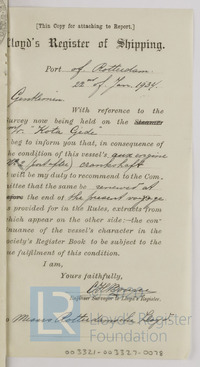 [Thin Copy for attaching to Report.]
Lloyd's Register of Shipping.
Port of Rotterdam
22nd of Jan. 1934.
Gentlemen,
With reference to the
survey now being held on the Steamer
"Kota Gede"
beg to inform you that, in consequence of
the condition of this vessel's aux. engine
No 2 (port-fore) crankshaft
it will be my duty to recommend to the Com-
mittee that the same be renewed at
the end of the present voyage
as provided for in the Rules, extracts from
which appear on the other side:—the con-
tinuance of the vessel's character in the
Society's Register Book to be subject to the
due fulfilment of this condition.
I am,
Yours faithfully,
Engineer Surveyor to Lloyd's Register.
Messrs Rotterdamsche Lloyd
LR
Lloyd's Register
Foundation